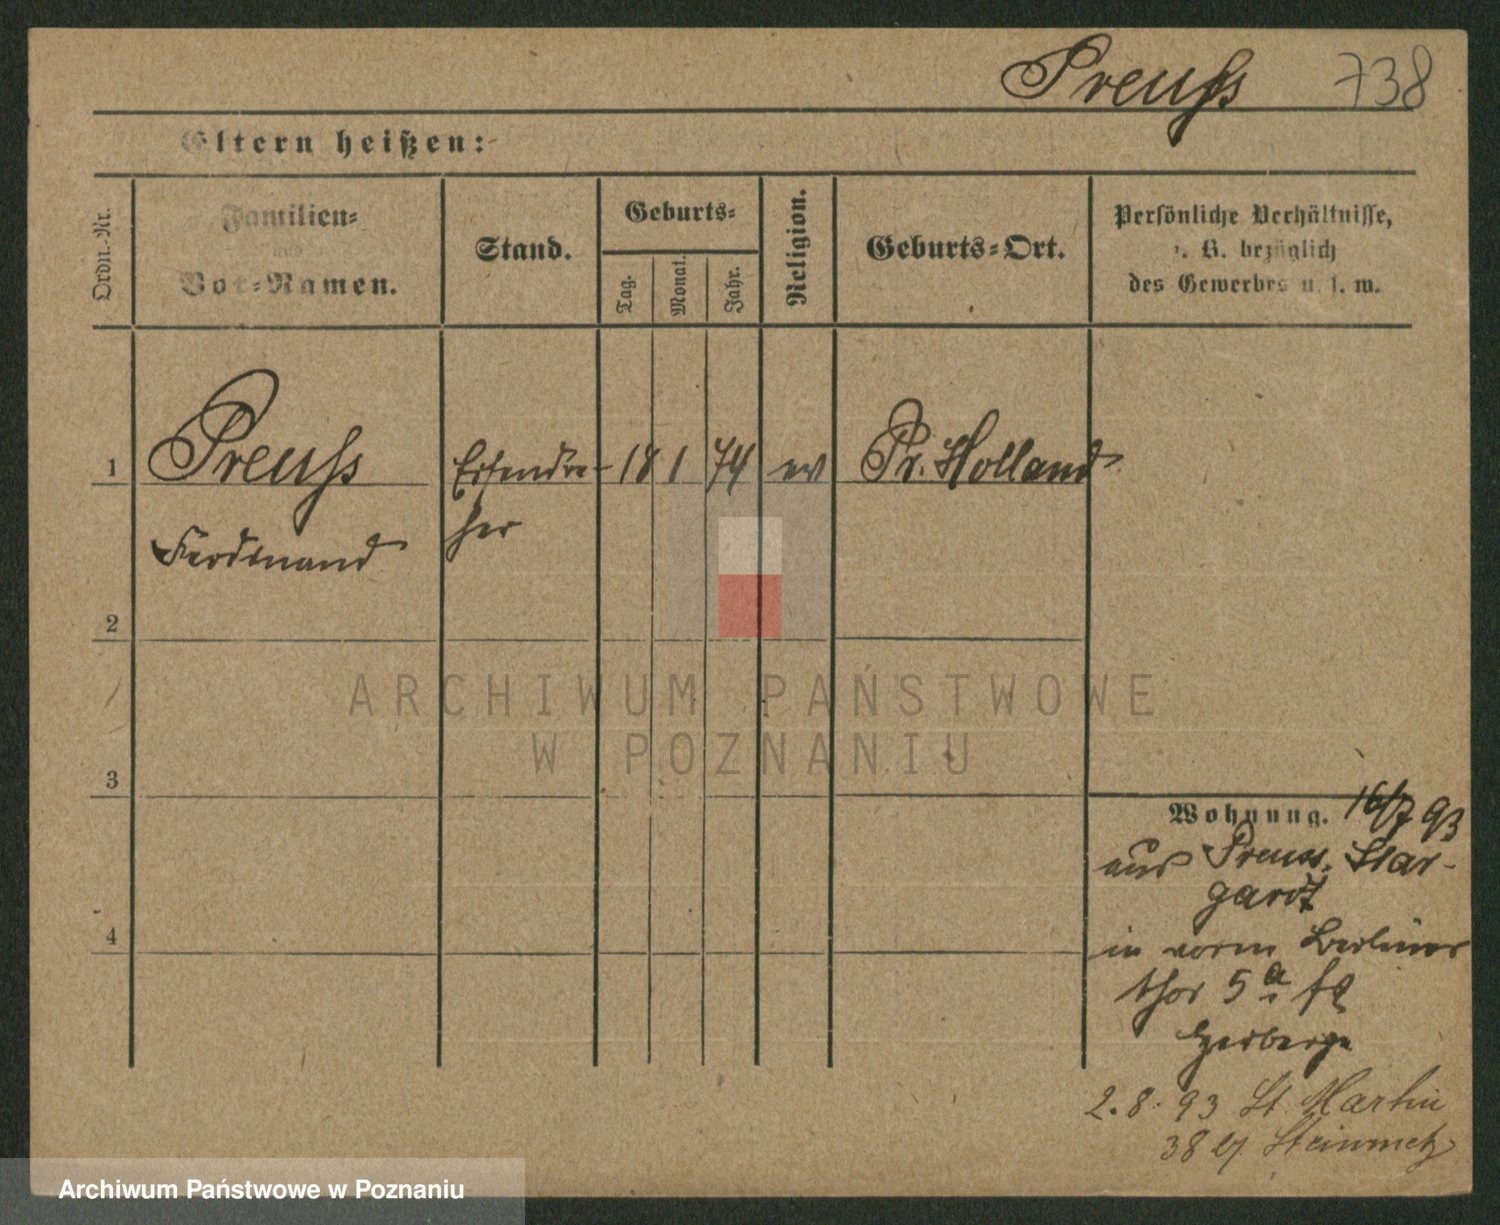 Preuß 738
Eltern heißen:
Ordn.-Nr.
Familien-
und
Vor-Namen.
Stand.
Geburts-
Tag.
Monat.
Jahr.
Religion.
Geburts-Ort.
Persönliche Verhältnisse,
z. B. bezüglich
des Gewerbes u. s. w.
1 Preuß Eisendre- 18 1 74 ev Pr. Holland
Ferdinand her
2
3
4
Wohnung. 16/7 93
aus Preuss. Star-
gardt
in vorm Berliner
thor 5 a
Herberge
2. 8. 93 St. Martin
38 Steinmetz
ARCHIWUM PAŃSTWOWE
W POZNANIU
Archiwum Państwowe w Poznaniu